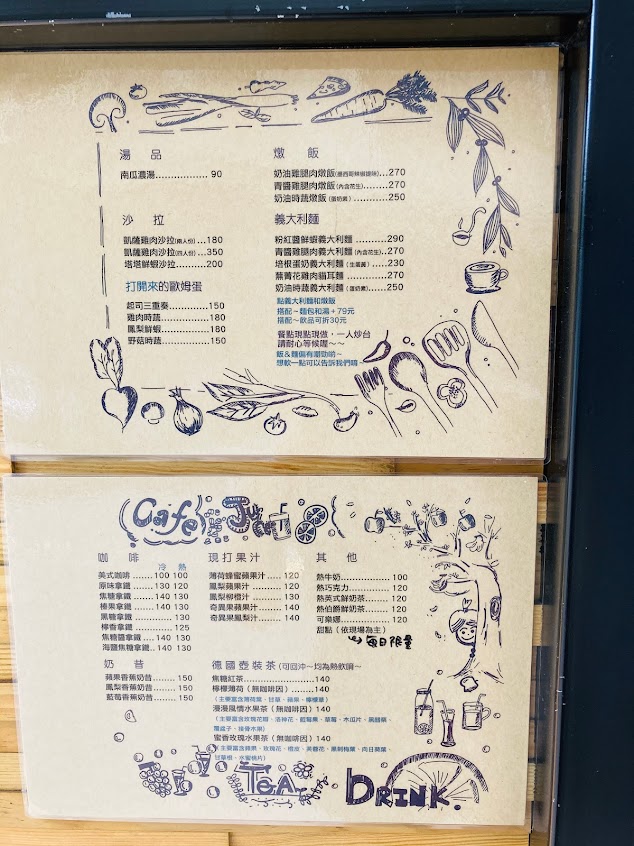 湯 品
南瓜濃湯................. 90
沙 拉
凱薩雞肉沙拉(兩人份)...180
凱薩雞肉沙拉(四人份)...350
塔塔鮮蝦沙拉.........200
打開來的歐姆蛋
起司三重奏............150
雞肉時蔬...............180
鳳梨鮮蝦...............180
野菇時蔬...............150
燉 飯
奶油雞腿肉燉飯...270
青醬雞腿肉燉飯(內含花生)........270
奶油時蔬燉飯(蛋奶素)..........250
義大利麵
粉紅醬鮮蝦義大利麵 ...............290
青醬雞腿肉義大利麵(內含花生)...270
培根蛋奶義大利麵(生蛋黃)......230
蕪菁花雞肉貓耳麵 .................270
奶油時蔬義大利麵(蛋奶素)......250
點義大利麵和燉飯
搭配~麵包和湯+79元
搭配~飲品可折30元
餐點現點現做，一人炒台
請耐心等候喔~~
飯&麵偏有嚼勁喲~
想軟一點可以告訴我們哦~
Cafe Juice
咖 啡
冷 熱
美式咖啡.......100 100
原味拿鐵.........130 120
焦糖拿鐵.........140 130
榛果拿鐵.........140 130
黑糖拿鐵............... 130
檸香拿鐵............... 125
焦糖醬拿鐵....140 130
海鹽焦糖拿鐵..140 130
奶 昔
蘋果香蕉奶昔.......150
鳳梨香蕉奶昔.......150
藍莓香蕉奶昔.......150
現 打 果 汁
薄荷蜂蜜蘋果汁...... 120
鳳梨蘋果汁............ 120
鳳梨柳橙汁............ 130
奇異果蘋果汁......... 130
奇異果鳳梨汁......... 130
其 他
熱牛奶..................100
熱巧克力................120
熱英式鮮奶茶..........120
熱伯爵鮮奶茶..........120
可樂娜...................120
甜點 (依現場為主)
每日限量
德 國 壺 裝 茶 (可回沖~均為熱飲唷~
焦糖紅茶.........................140
檸檬薄荷(無咖啡因)........140
(主要富含薄荷葉、甘草、蘋果、檸檬草)
漫漫風情水果茶(無咖啡因)140
(主要富含玫瑰花瓣、洛神花、藍莓果、草莓、木瓜片、黑醋栗、
覆盆子、接骨木果)
蜜香玫瑰水果茶(無咖啡因)140
TEA
DRINK